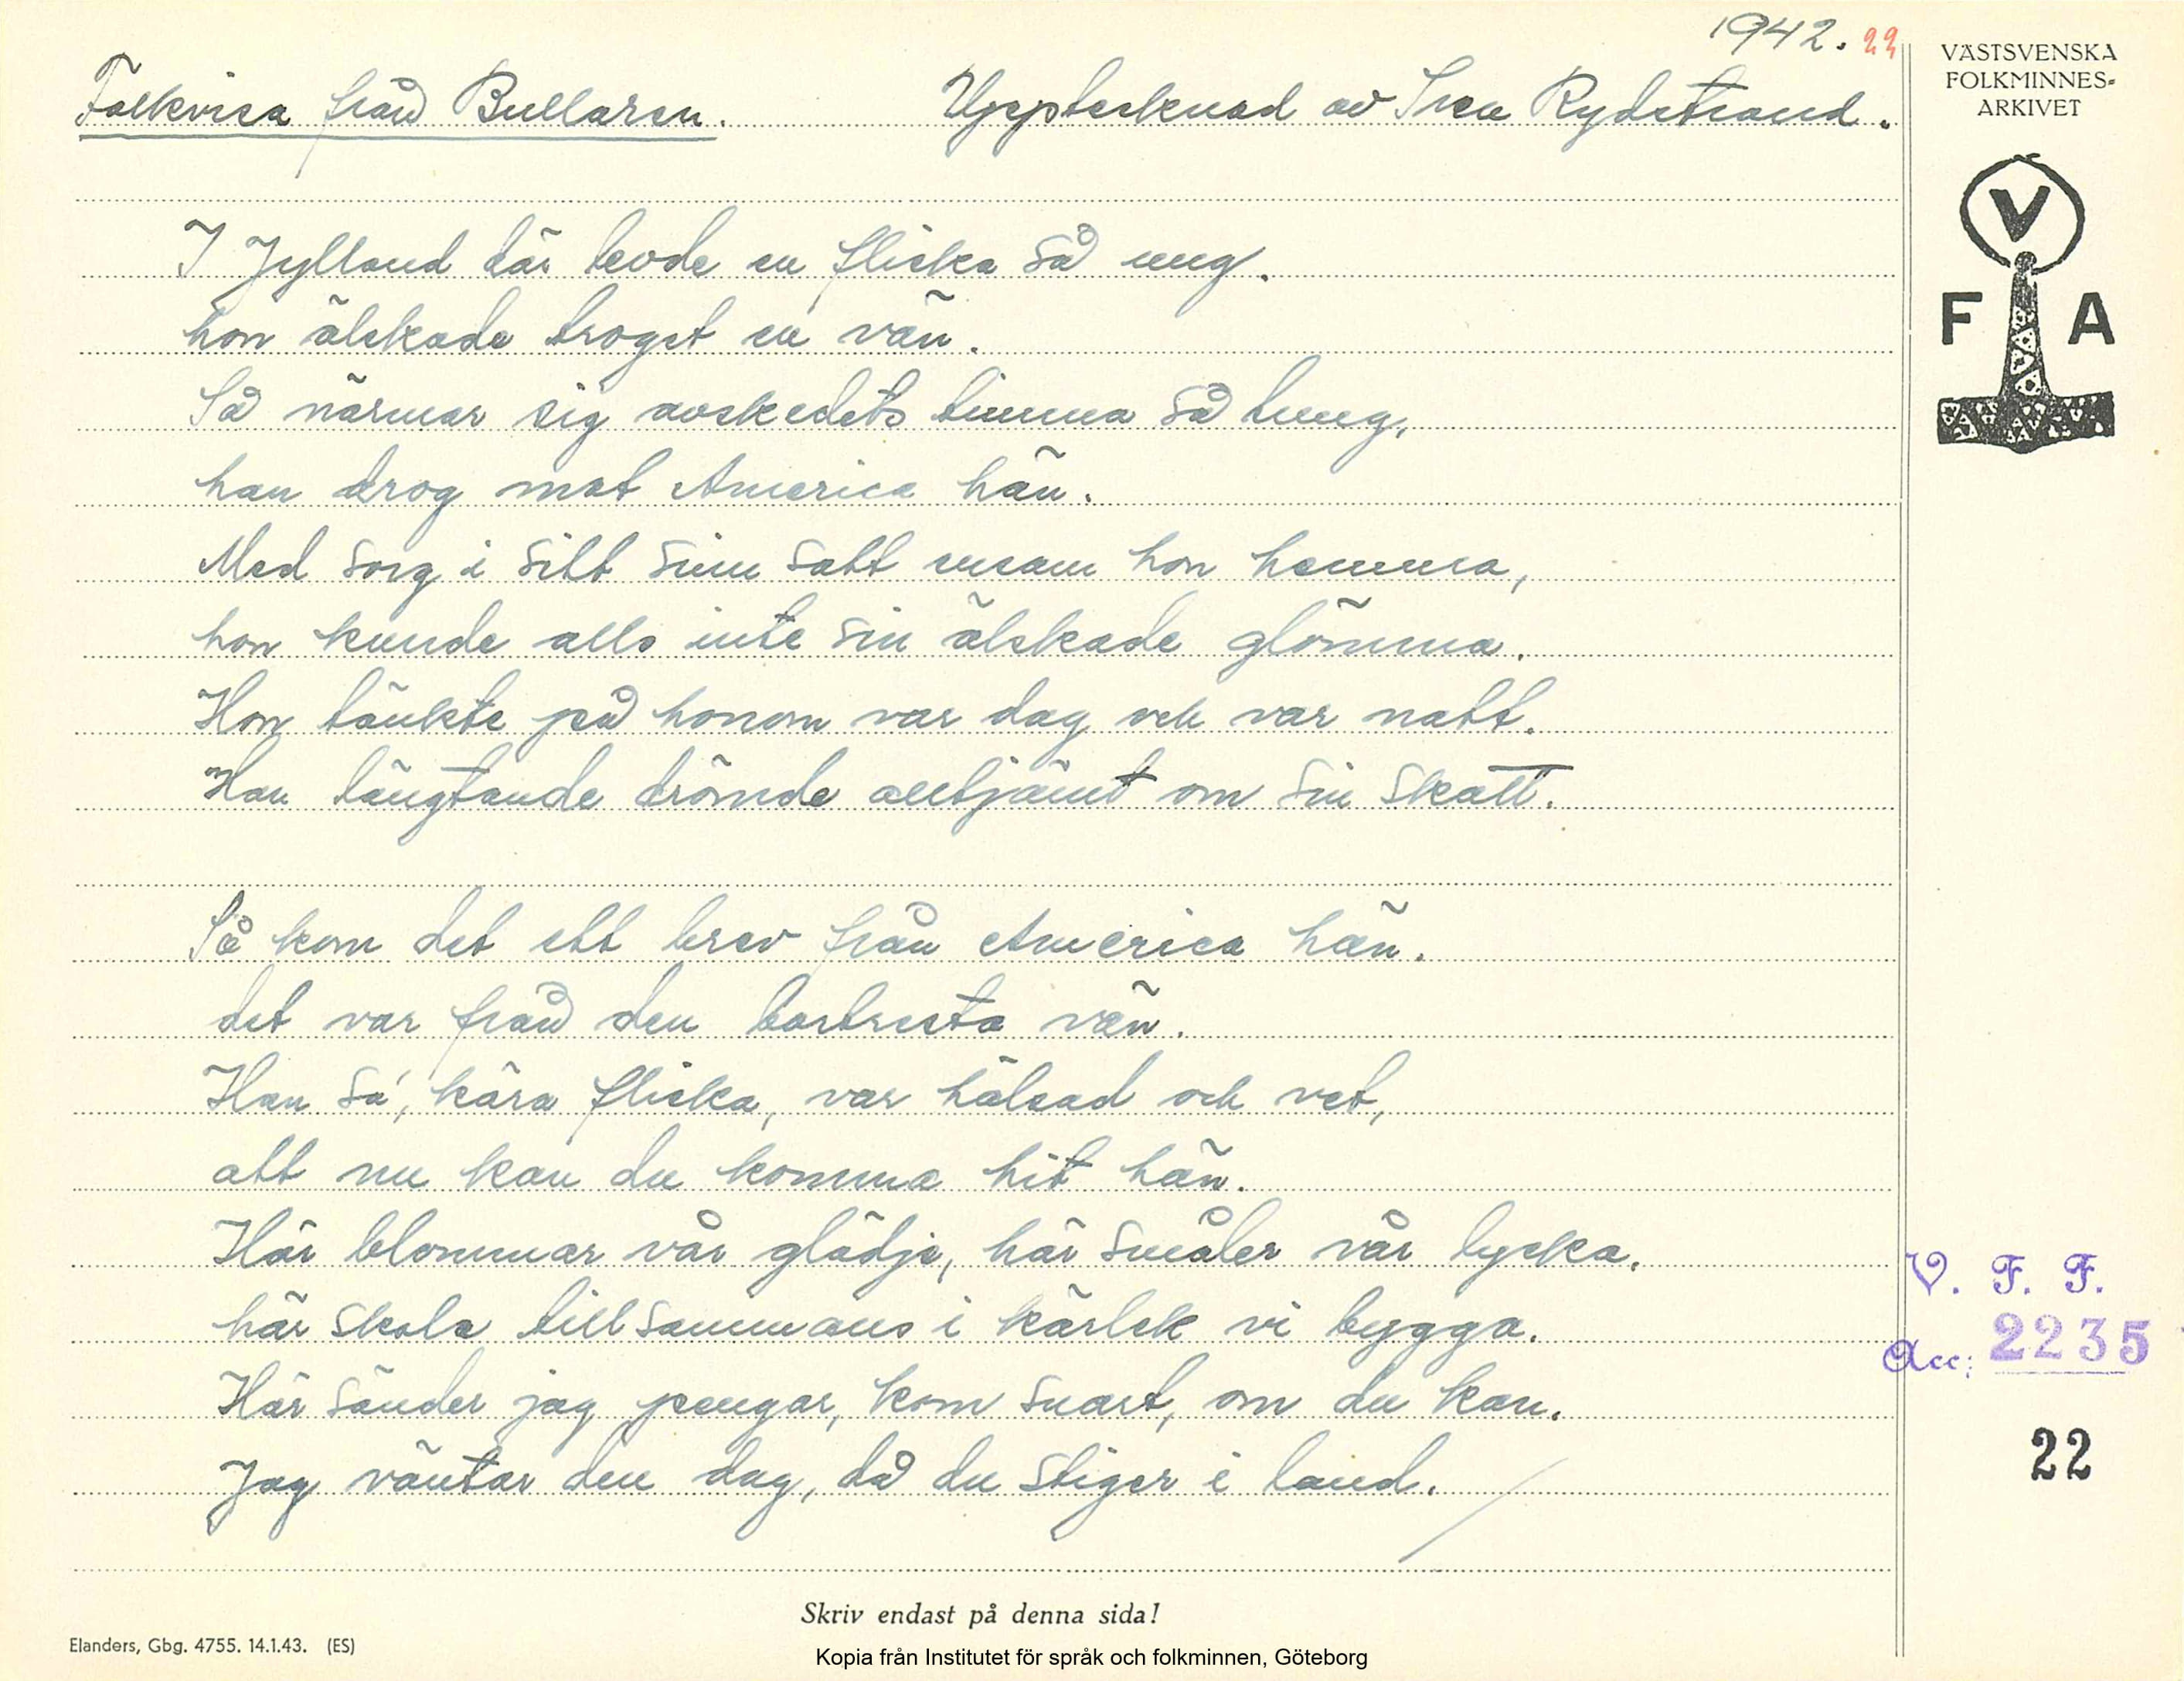 1942. 22
VÄSTSVENSKA
FOLKMINNES-
ARKIVET
Folkvisa från Bullaren. Upptecknad av Sven Rydstrand.
V
F A
I Jylland där levde en flicka så ung.
hon älskade troget en vän.
Så närmar sig avskedets timma så tung,
han drog mot America hän.
Med sorg i sitt sinn satt ensam hon hemma,
hon kunde alls inte sin älskade glömma.
Hon tänkte på honom var dag och var natt.
Hon längtande drömde alltjämt om sin skatt.
Så kom det ett brev från America hän.
det var från den bortresta vän.
Han sa', kära flicka, var hälsad och vet,
att nu kan du komma hit hän.
Här blommar vår glädje, här småler vår lycka.
här skola tillsammans i kärlek vi bygga.
Här sänder jag pengar, kom snart, om du kan.
Jag väntar den dag, då du stiger i land.
V. F. F.
Acc: 2235
22
Skriv endast på denna sida!
Elanders, Gbg. 4755. 14.1.43. (ES)
Kopia från Institutet för språk och folkminnen, Göteborg